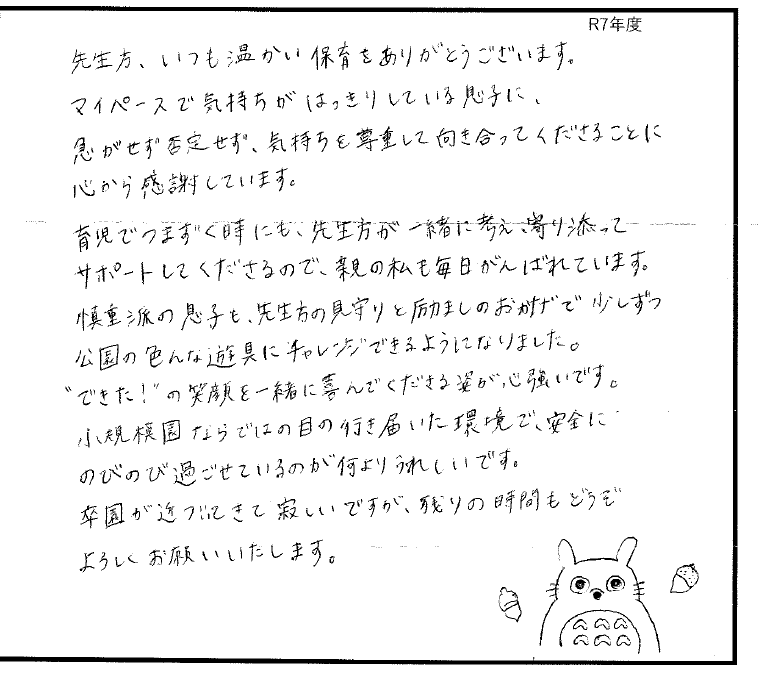 R7年度
先生方、いつも温かい保育をありがとうございます。
マイペースで気持ちがはっきりしている息子に、
急がせず否定せず、気持ちを尊重して向き合ってくださることに
心から感謝しています。
育児でつまずく時にも、先生方が一緒に考え、寄り添って
サポートしてくださるので、親の私も毎日がんばれています。
慎重派の息子も、先生方の見守りと励ましのおかげで少しずつ
公園の色んな遊具にチャレンジできるようになりました。
“できた!”の笑顔を一緒に喜んでくださる姿が心強いです。
小規模園ならではの目の行き届いた環境で、安全に
のびのび過ごせているのが何よりうれしいです。
卒園が近づいてきて寂しいですが、残りの時間もどうぞ
よろしくお願いいたします。